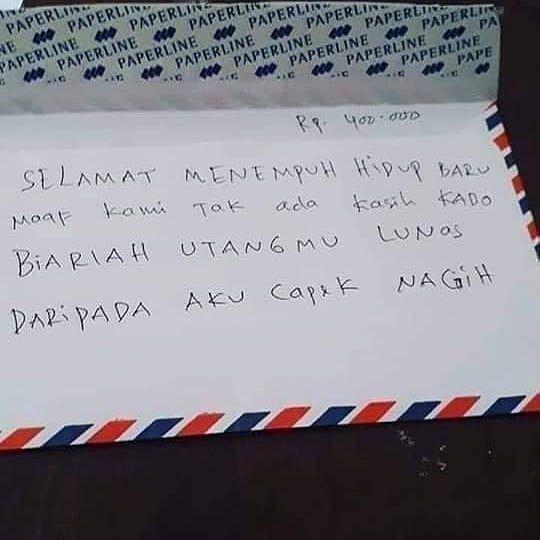 PAPERLINE PAPERLINE PAPERLINE PAPERLINE PAPERLINE
PAPERLINE PAPERLINE PAPERLINE PAPERLINE PAPERLINE
PAPERLINE PAPERLINE PAPERLINE PAPERLINE
Rp. 400.000
SELAMAT MENEMPUH HIDUP BARU
MAAF kami TAK ada kasih KADO
BIARIAH UTANGMU LUNAS
DARIPADA AKU CAPEK NAGIH